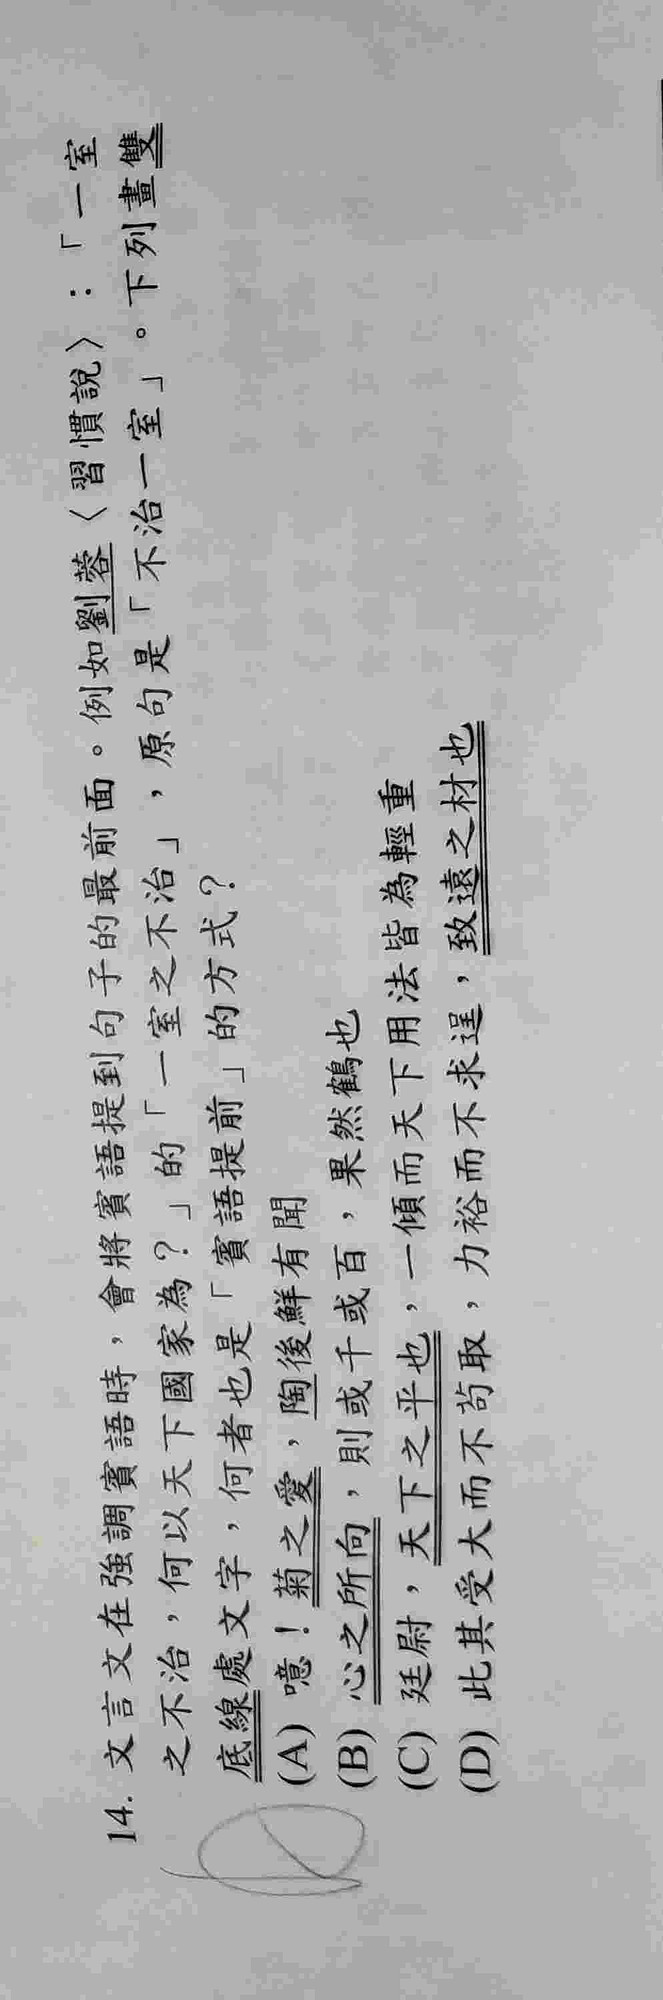 14. 文言文在強調賓語時，會將賓語提到句子的最前面。例如劉蓉〈習慣說〉：「一室
之不治，何以天下國家為？」的「一室之不治」，原句是「不治一室」。下列畫雙
底線處文字，何者也是「賓語提前」的方式？
(A) 噫！菊之愛，陶後鮮有聞
(B) 心之所向，則或千或百，果然鶴也
(C) 廷尉，天下之平也，一傾而天下用法皆為輕重
(D) 此其受大而不苟取，力裕而不求逞，致遠之材也